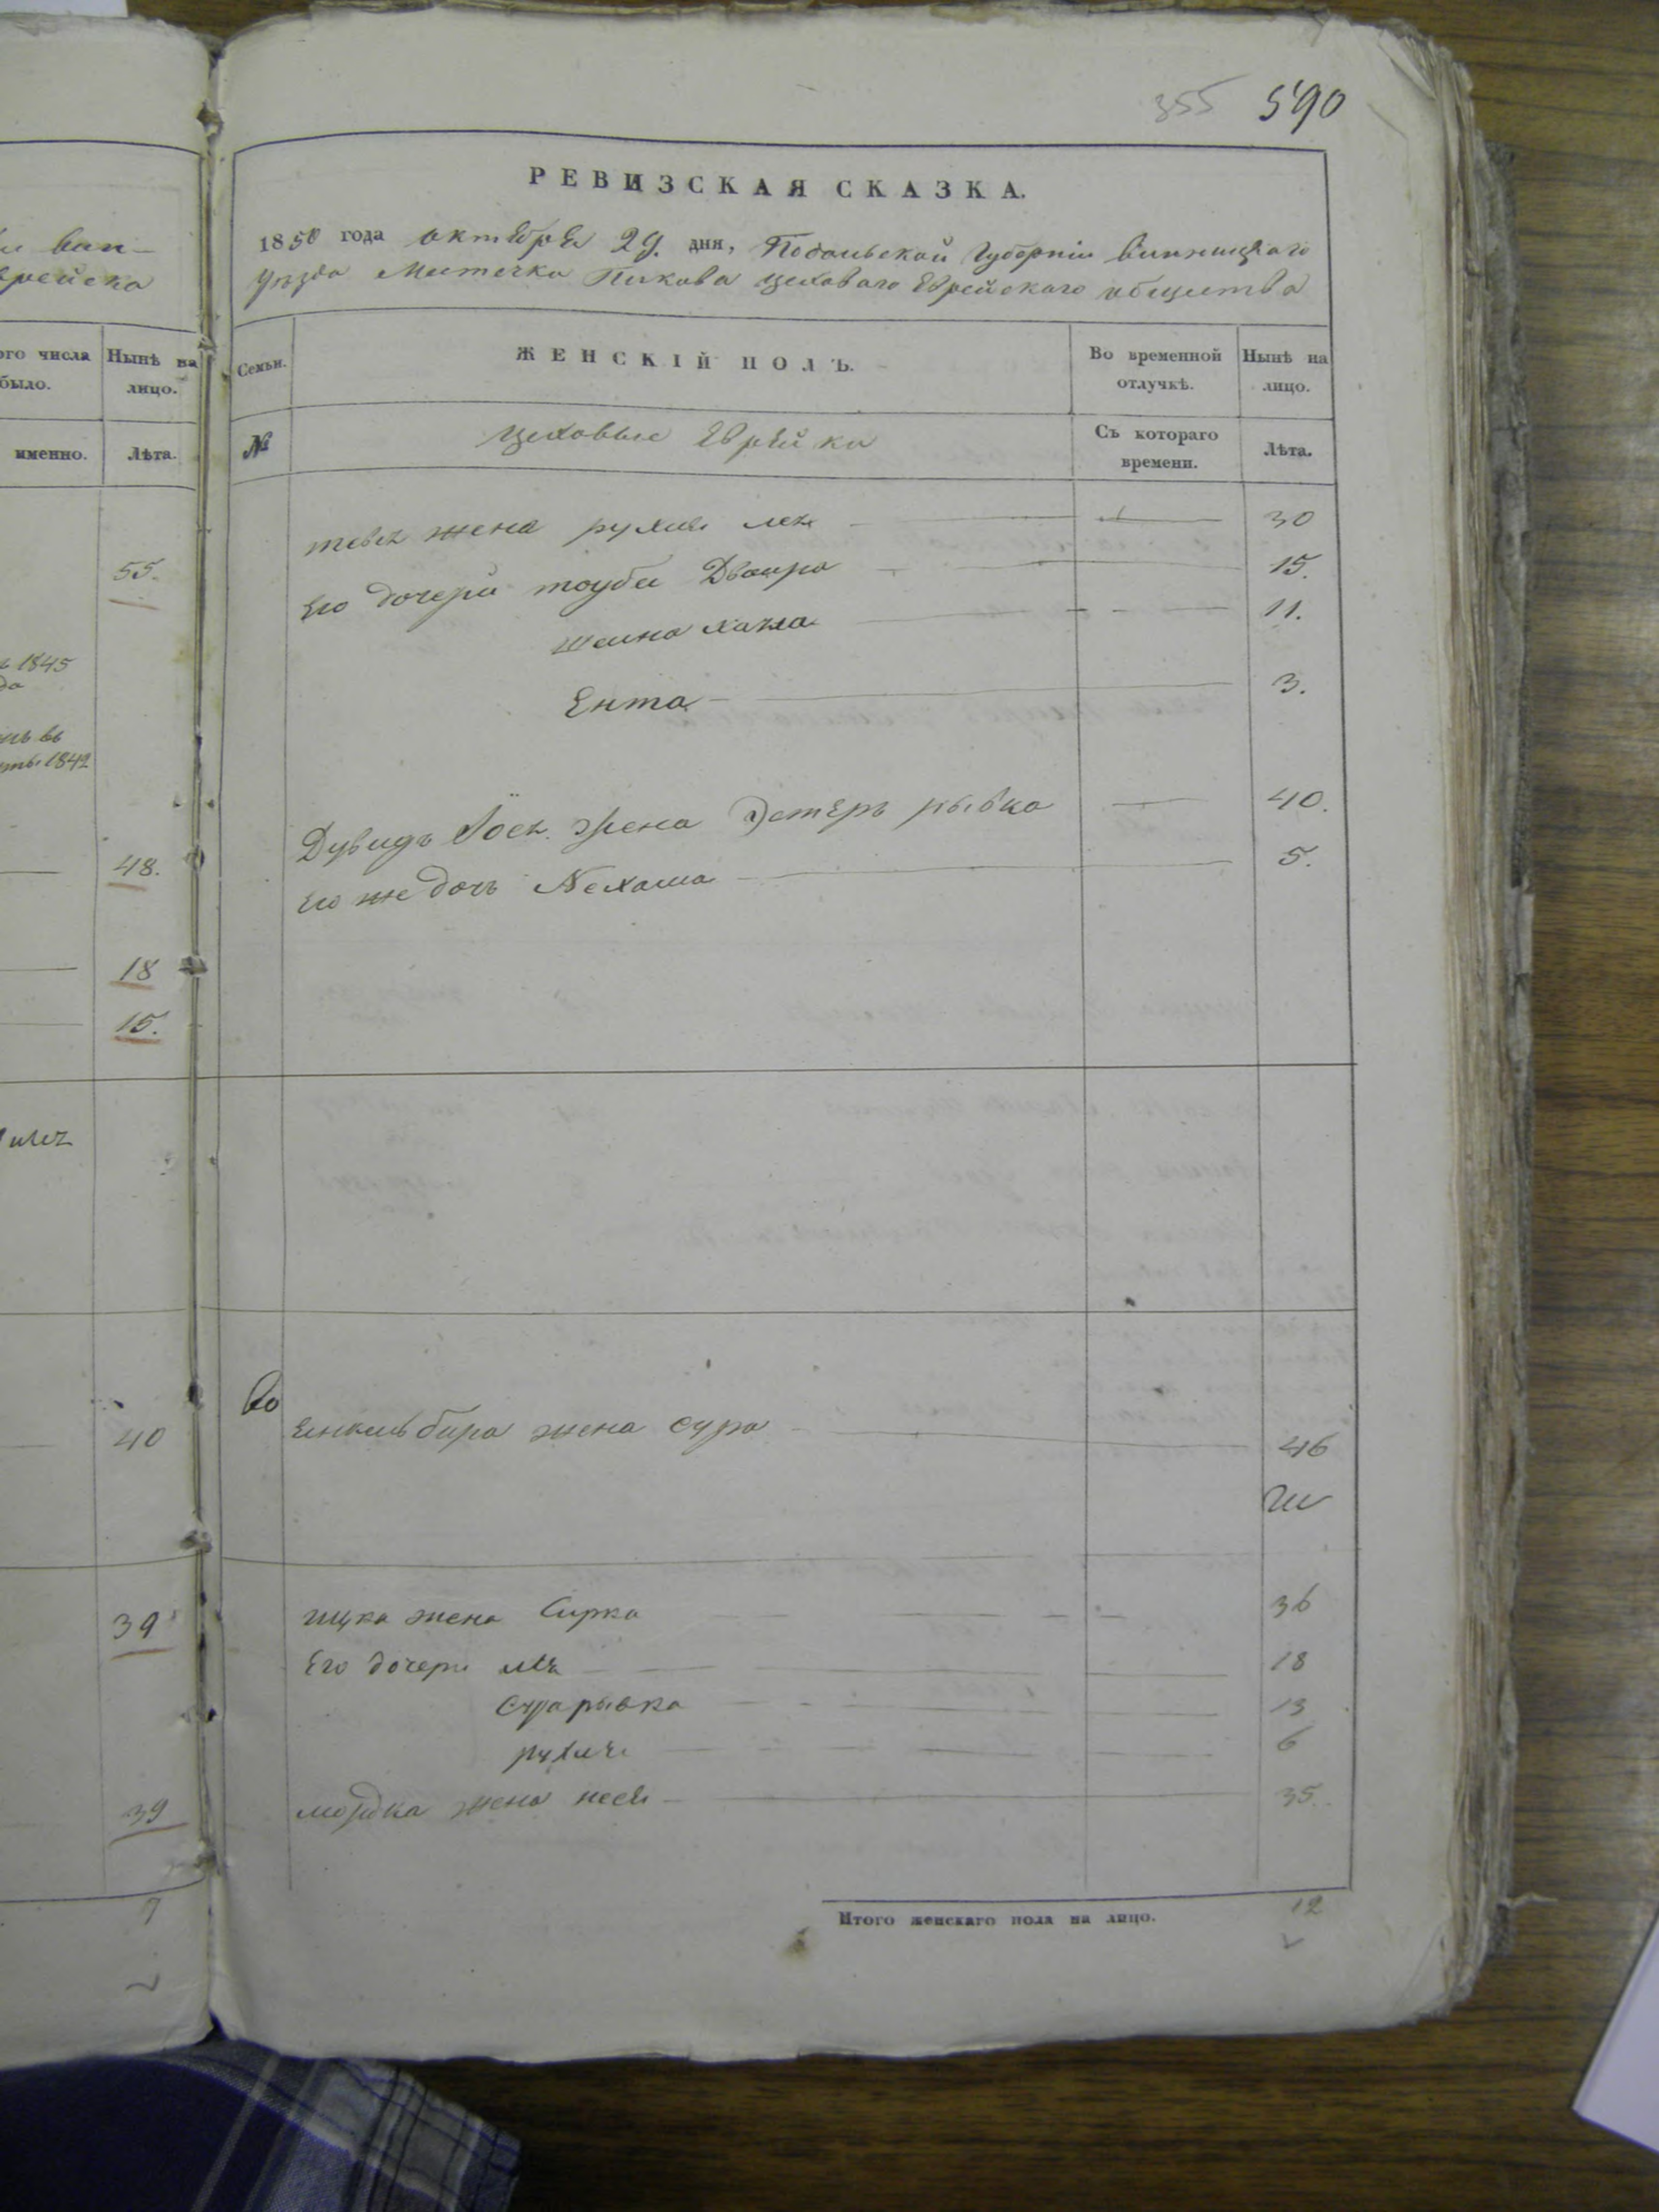 вреиска
ого числа
Нынѣ на
было.
лицо.
именно.
Лѣта.
55.
1845
1842
48.
18
15.
40
39
39
7
355 590
РЕВИЗСКАЯ СКАЗКА.
1850 года октебре 29. дня, Подольской Губерніи Винницкаго
уезда Местечка Пикова цеховаго Еврейскаго общества
Семьи.
ЖЕНСКІЙ ПОЛЪ.
Во временной отлучкѣ.
Нынѣ на лицо.
№
Цеховые Еврейки
Съ котораго времени.
Лѣта.
жена рухля лея 30
Его дочери тоуба Двойра 15.
шейна хана 11.
Ента 3.
Дувидъ жена Эстеръ рывка 40.
Его же дочь Нехама 5.
Енкель бера жена сура 46
ицка жена Сирка 36
Его дочери лея 18
Сура рывка 13
рухля 6
мордка жена неся 35.
Итого женскаго пола на лицо. 12